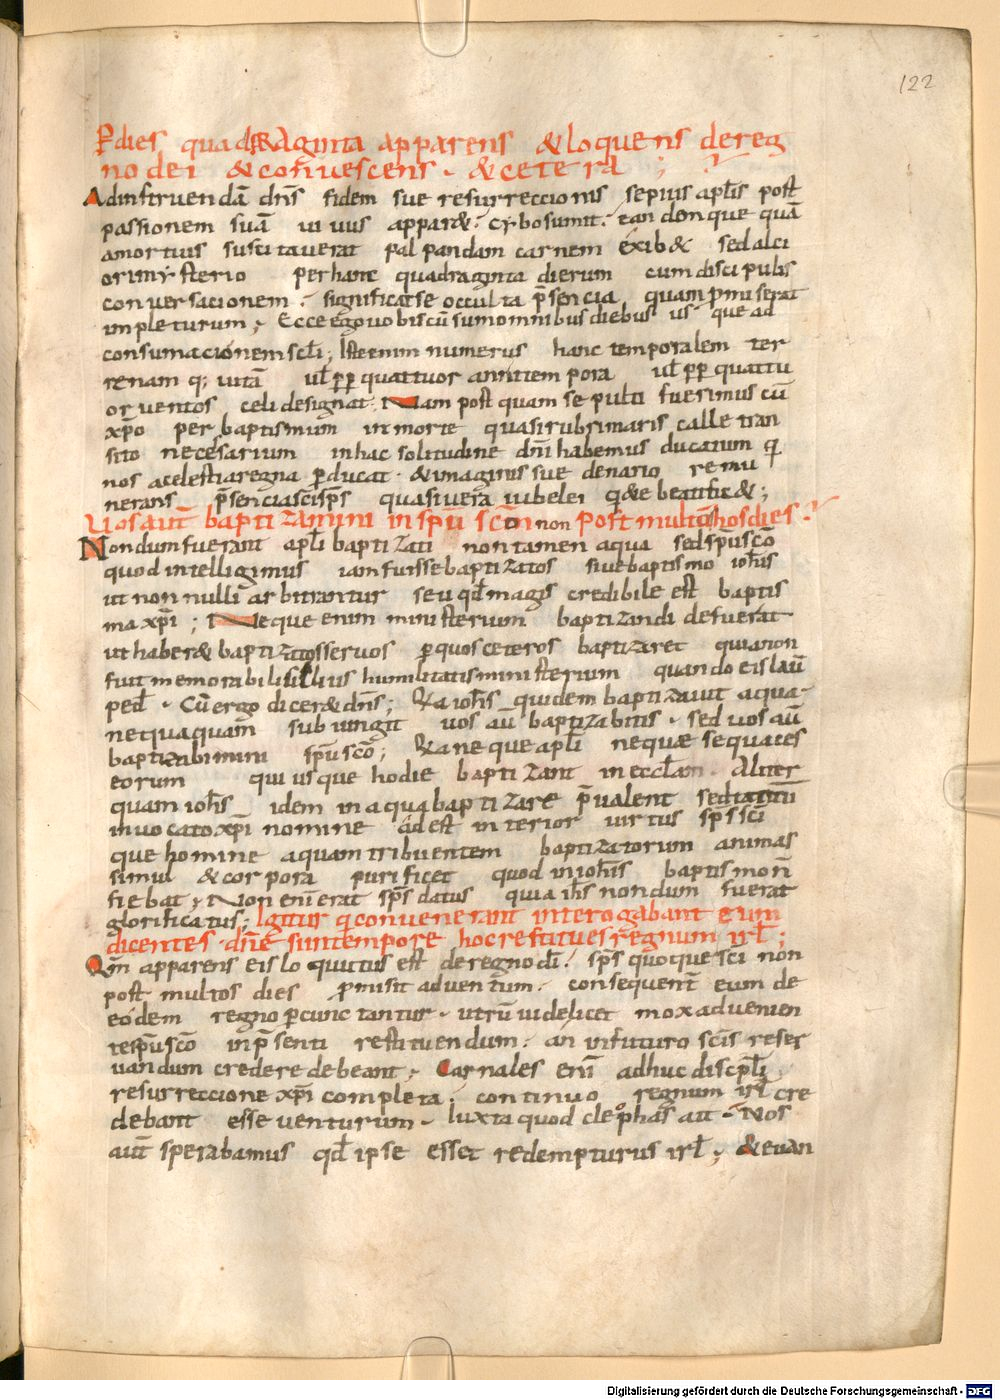 122
P dies quadraginta apparens & loquens de reg
no dei & convescens · & cetera ;
Adinstruendā dn̄s fidem sue resurreccionis sepius apl̄is post
passionem suā vivus appar& · cybo sumit · tandemque quā
amortuis suscitaverat palpandam carnem exib& sed alci
ori mysterio per hanc quadraginta dierum cum discipulis
conversacionem · significat se occulta p̄sencia quam promiserat
impleturum ; Ecce ego vobiscū sum omnibus diebus us que ad
consumacionem scl̄i ; Iste enim numerus hanc temporalem ter
renam q; vitā ul̄ pp̄ quattuor anni tempora ul̄ pp̄ quattu
or ventos celi designat · Nam post quam sepulti fuerimus cū
xp̄o per baptismum in morte quasi rubri maris calle tran
sito necesarium in hac solitudine dn̄i habemus ducatum q
nos acelestia regna perducat · & imaginis sue denario remu
nerans p̄sencia sci sp̄s quasi vera iubelei qe beatific& ;
Uos aut̄ baptizamini in sp̄u sc̄o non post multos hos dies ·
Nondum fuerant apl̄i baptizati non tamen aqua sed sp̄u sc̄o
quod intelligimus iam fuisse baptizatos sive baptismo ioh̄is
ut non nulli arbitrantur seu qd̄ magis credibile est baptis
ma xp̄i ; Neque enim ministerium baptizandi defuerat
ut haber& baptizatos servos p quos ceteros baptizaret quia non
fuit memorabilis illius humilitatis ministerium quando eis lau
ped̄ · Cū ergo dicer& dn̄s ; Quia ioh̄s quidem baptizavit aqua ·
nequaquam subiungit vos au baptizabitis · sed vos aū
baptizabimini sp̄u sc̄o ; Quia neque apl̄i neque sequaces
eorum qui usque hodie baptizant in eccl̄am · Aliter
quam ioh̄s idem in aqua baptizare p̄valent sed tantū
invocato xp̄i nomine adest interior virtus sp̄s sc̄i
que homine aquam tribuentem baptizatorum animas
simul & corpora purificet quod in ioh̄is baptismo n̄
fiebat ; Non en̄i erat sp̄s datus quia ih̄s nondum fuerat
glorificatus ; Igitur q convenerant interogabant eum
dicentes · dn̄e si in tempore hoc restitues regnum irl̄ ;
Qm̄ apparens eis loquutus est de regno dī · sp̄s quoque sc̄i non
post multos dies promisit adventum · consequent̄ eum de
eodem regno percunctantur · utrū videlicet mox advenien
te sp̄u sc̄o in p̄senti restituendum · an in futuro sc̄is reser
vandum credere debeant · Carnales enī adhuc discip̄li
resurreccione xp̄i completa · continuo regnum irl̄ cre
debant esse venturum · Iuxta quod cleophas ait · Nos
aut̄ sperabamus qd̄ ipse esset redempturus irl̄ ; & evan
Digitalisierung gefördert durch die Deutsche Forschungsgemeinschaft - DFG